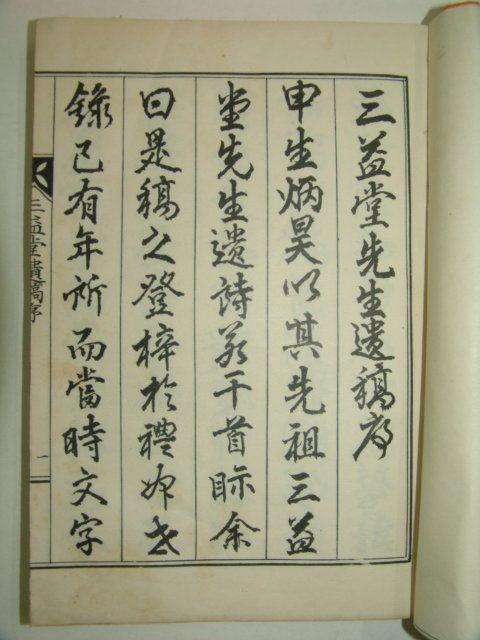 三益堂先生遺稿序
申生炳昊以其先祖三益
堂先生遺詩若干首眎余
曰是稿之登梓於禮妒世
錄已有年所而當時文字
三益堂遺稿序
一